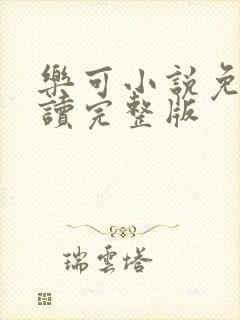 樂可小說免
讀完整版
瑞雲塔